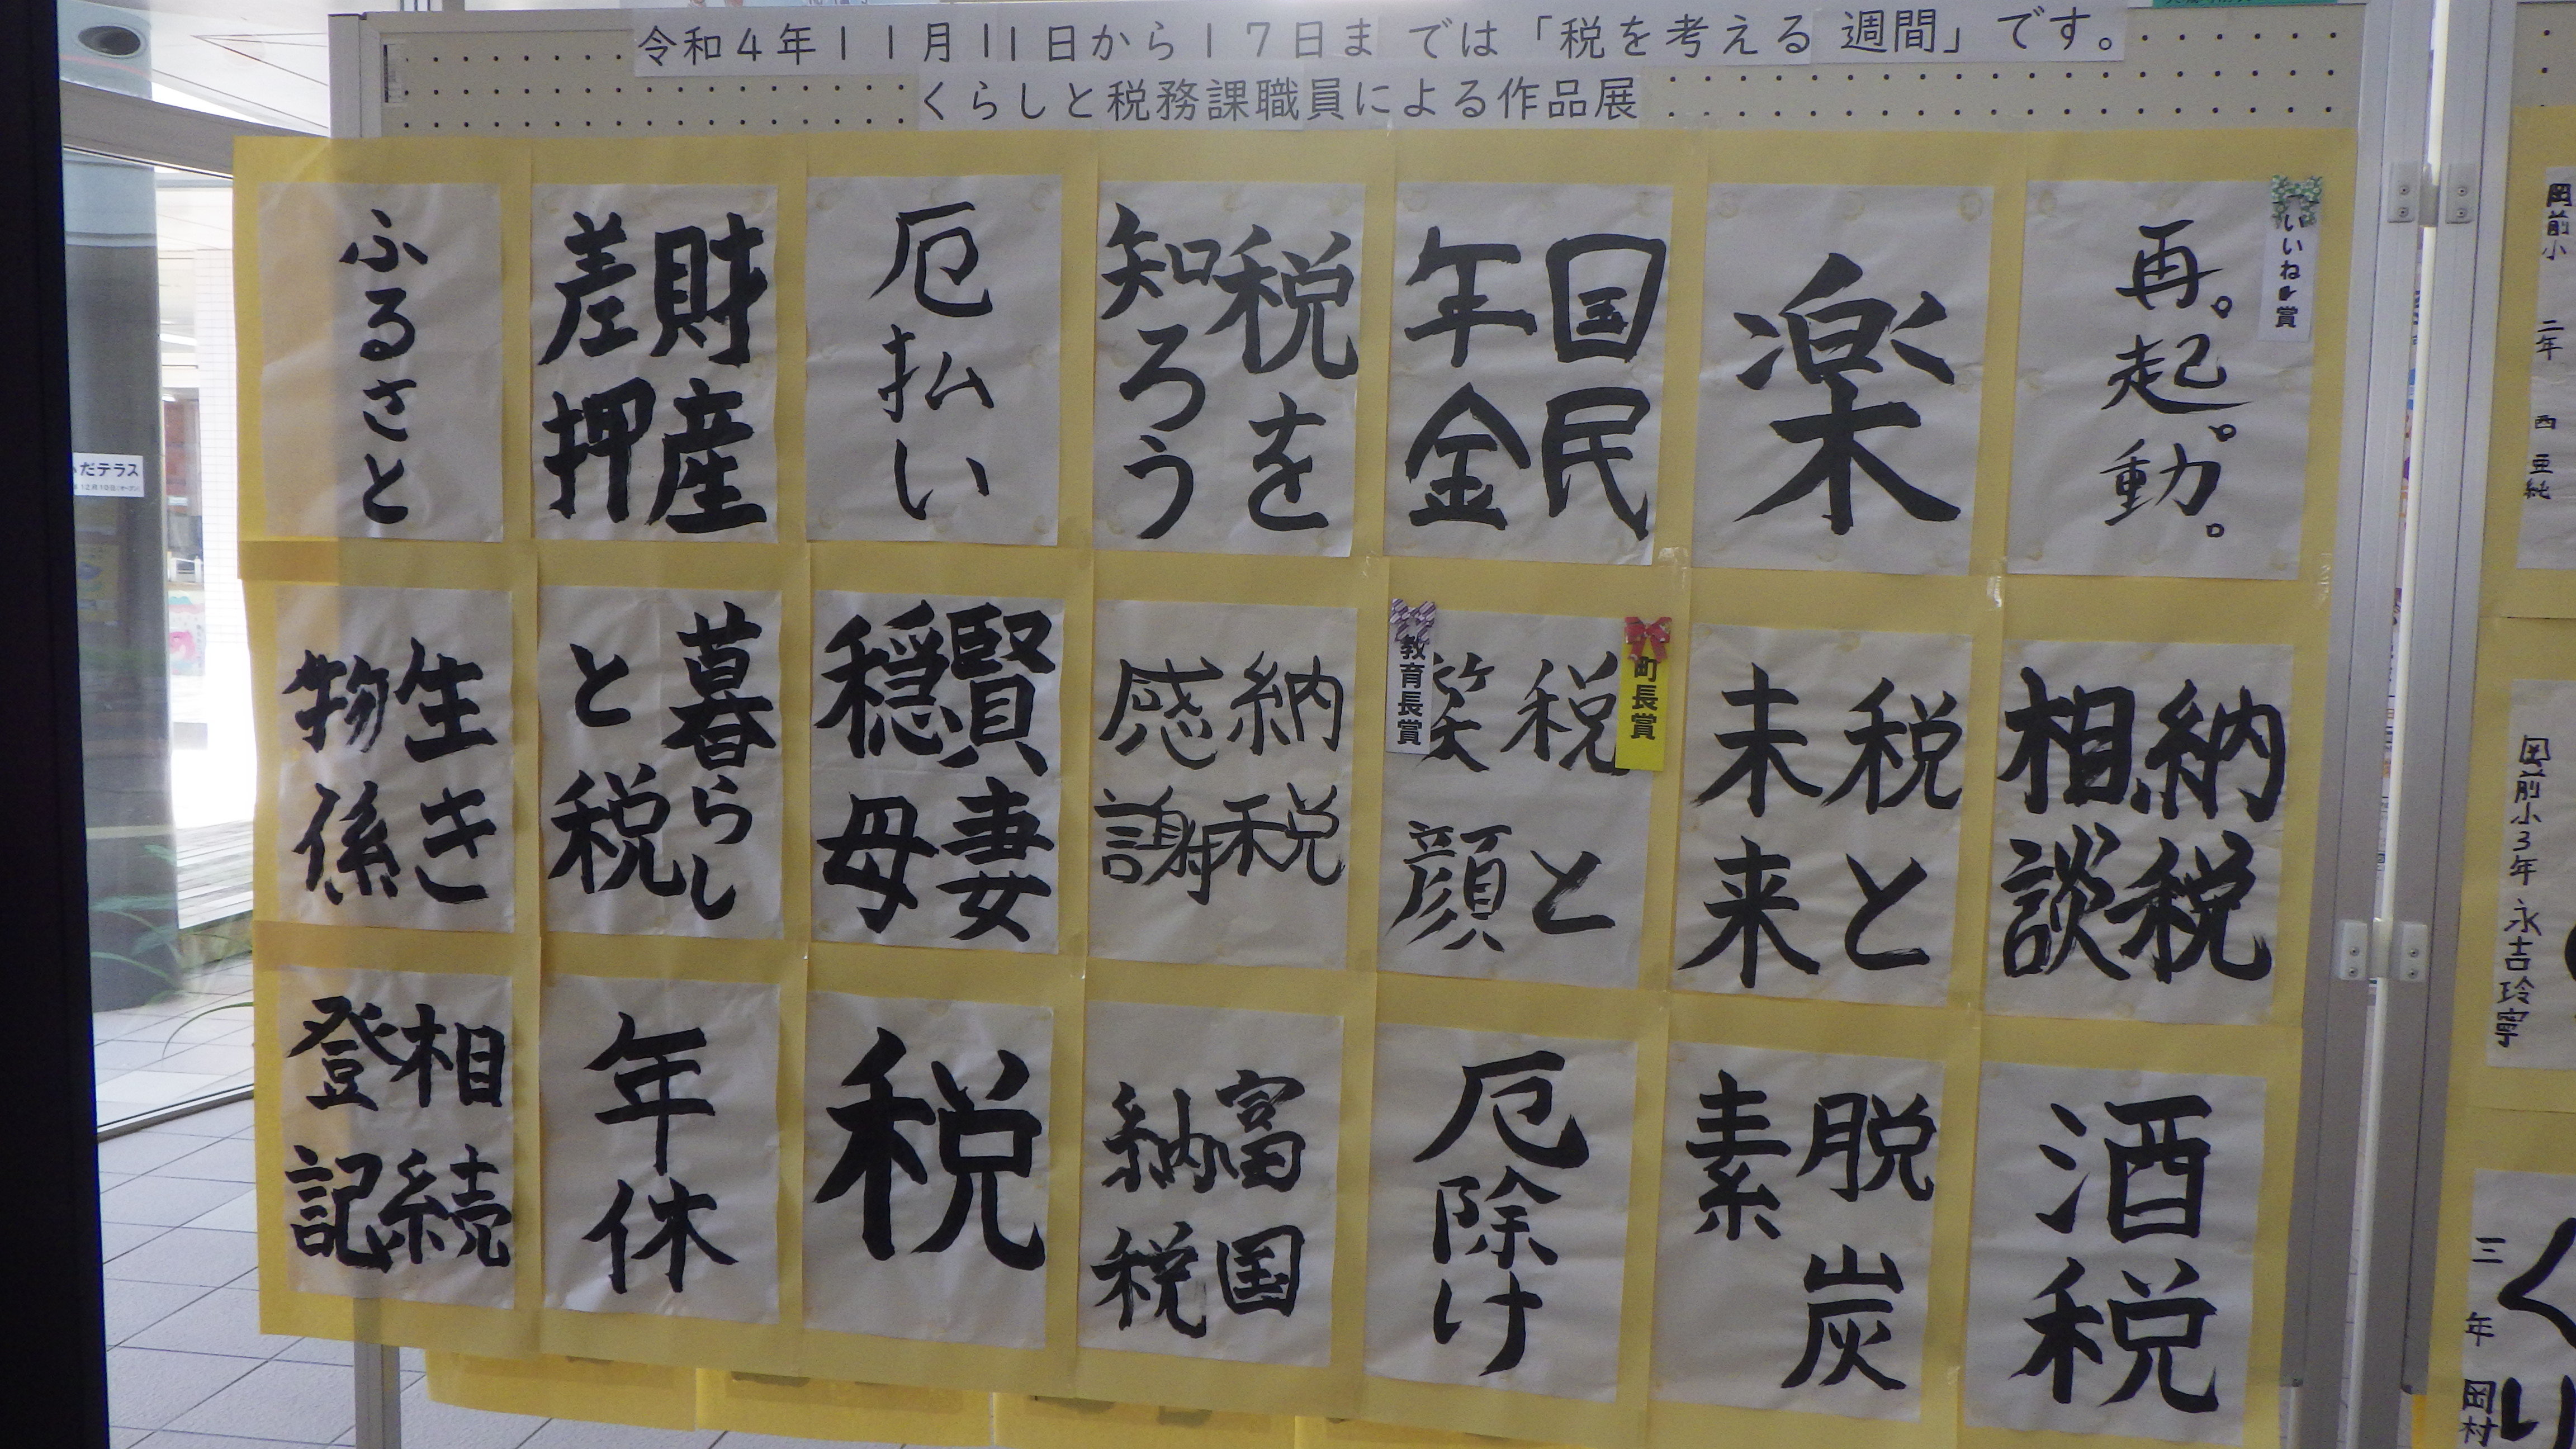 令和4年11月11日から17日までは「税を考える週間」です。
くらしと税務課職員による作品展
いいね賞
再。起。動。
楽
国民
年金
税を
知ろう
厄払い
財産
差押
ふるさと
納税
相談
税と
未来
町長賞
税と
笑顔
教育長賞
納税
感謝
賢妻
穏母
暮らし
と税
生き
物係
酒税
脱炭
素
厄除け
富国
納税
税
年休
相続
登記
だテラス
12月10日
岡前小 二年 西 亘純
岡前小3年 永吉玲寧
三年 岡村